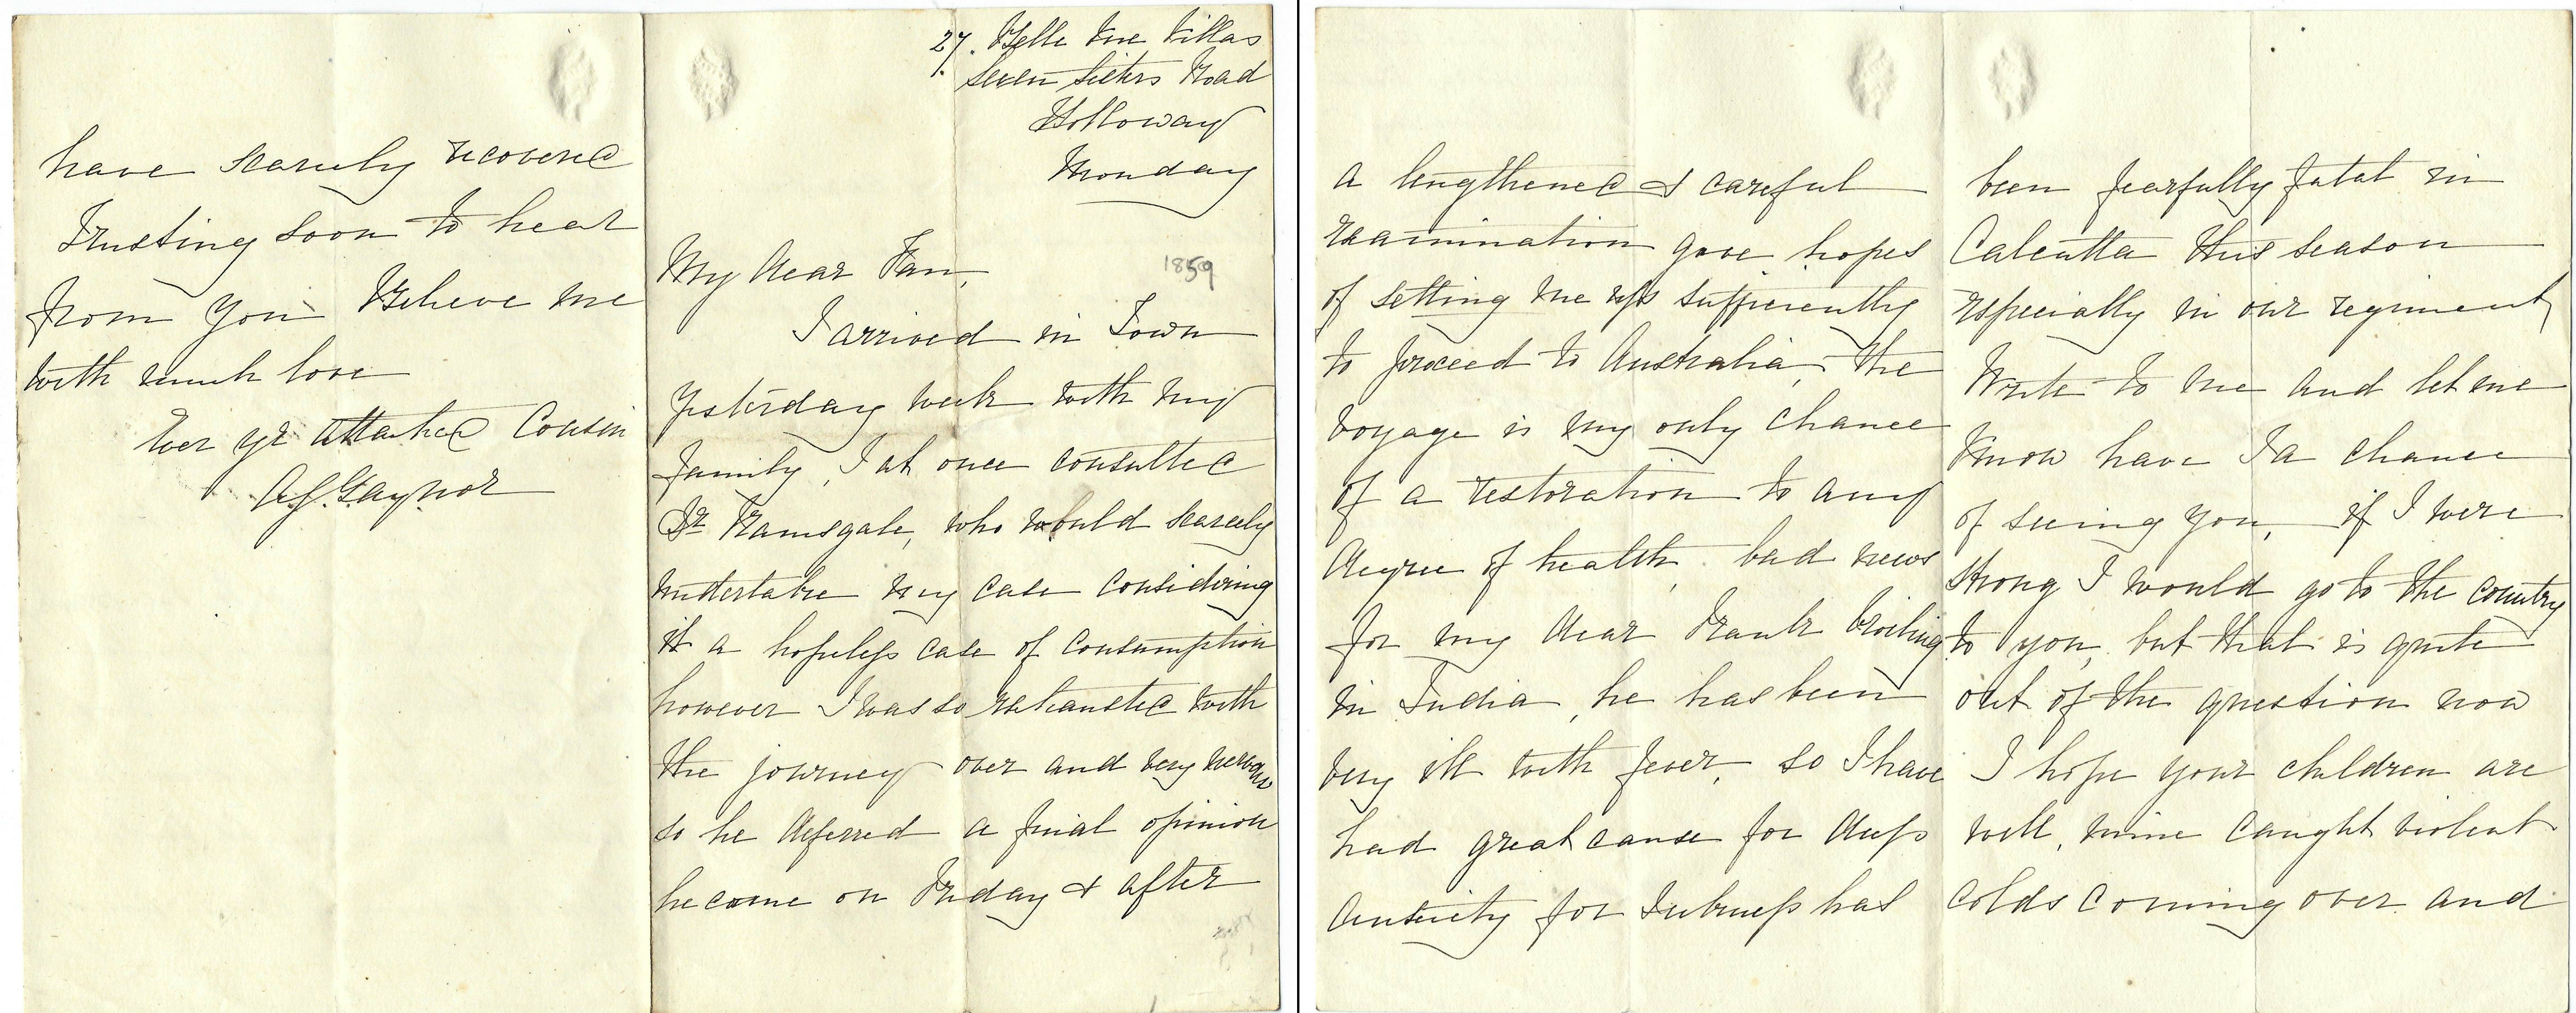 27. Belle Vue Villas
Seven Sisters Road
Holloway
Monday
1859
My dear Fan,
I arrived in Town
yesterday week with my
family, I at once consulted
Dr Ramsgate, who would scarcely
undertake my case considering
it a hopeless case of consumption
however I was so exhausted with
the journey over and very nervous
so he deferred a final opinion
he came on Friday & after
a lengthened & careful
examination gave hopes
of setting me up sufficiently
to proceed to Australia, the
voyage is my only chance
of a restoration to any
degree of health. bad news
for my dear Frank broiling
in India, he has been
very ill with fever, so I have
had great cause for deep
anxiety for Sickness has
been fearfully fatal in
Calcutta this season
especially in our regiment
Write to me and let me
know have I a chance
of seeing you, if I were
strong I would go to the country
to you, but that is quite
out of the question now
I hope your children are
well, mine caught violent
colds coming over and
have scarcely recovered
Trusting soon to hear
from you Believe me
with much love
Ever yr attached Cousin
Gaynor